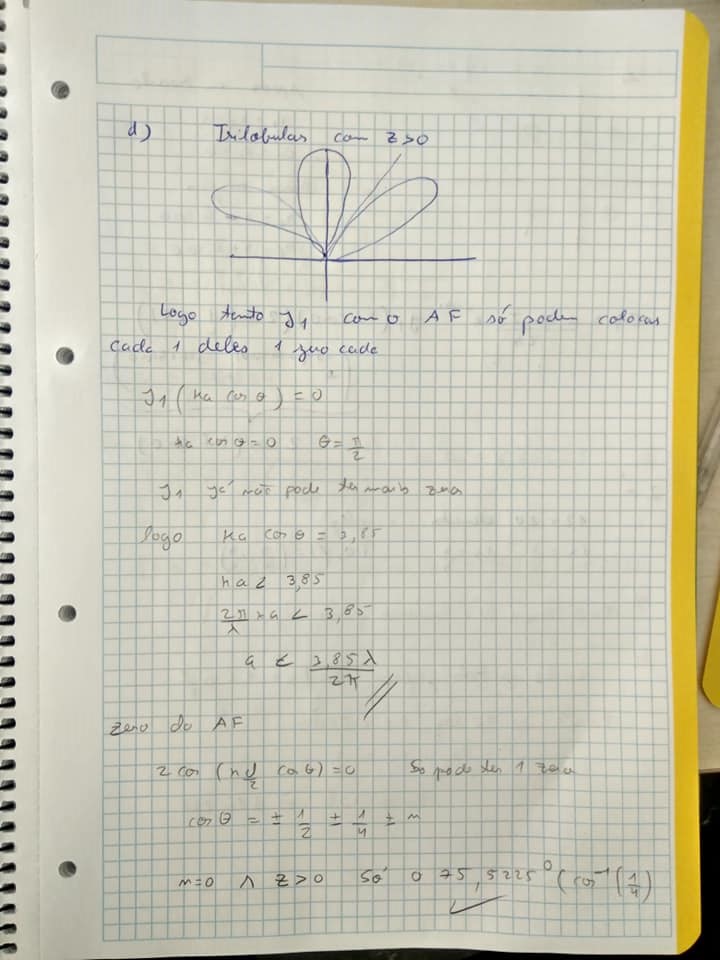 d) Trilobulas com z>0
Logo tanto J1 como o AF só podem colocar
cada 1 deles 1 zero cada
J1 (ka cos θ) = 0
ka cos θ = 0 θ = π/2
J1 já não pode ter mais zeros
logo ka cos θ = 3,85
ka < 3,85
2π/λ × a < 3,85
a < 3,85λ/2π
zero do AF
2 cos (k d/2 cos θ) = 0 So pode ter 1 zero
cos θ = ± 1/2 ± 1/4 ± n
n=0 ∧ z>0 Só o 75,5225° (cos⁻¹(1/4)